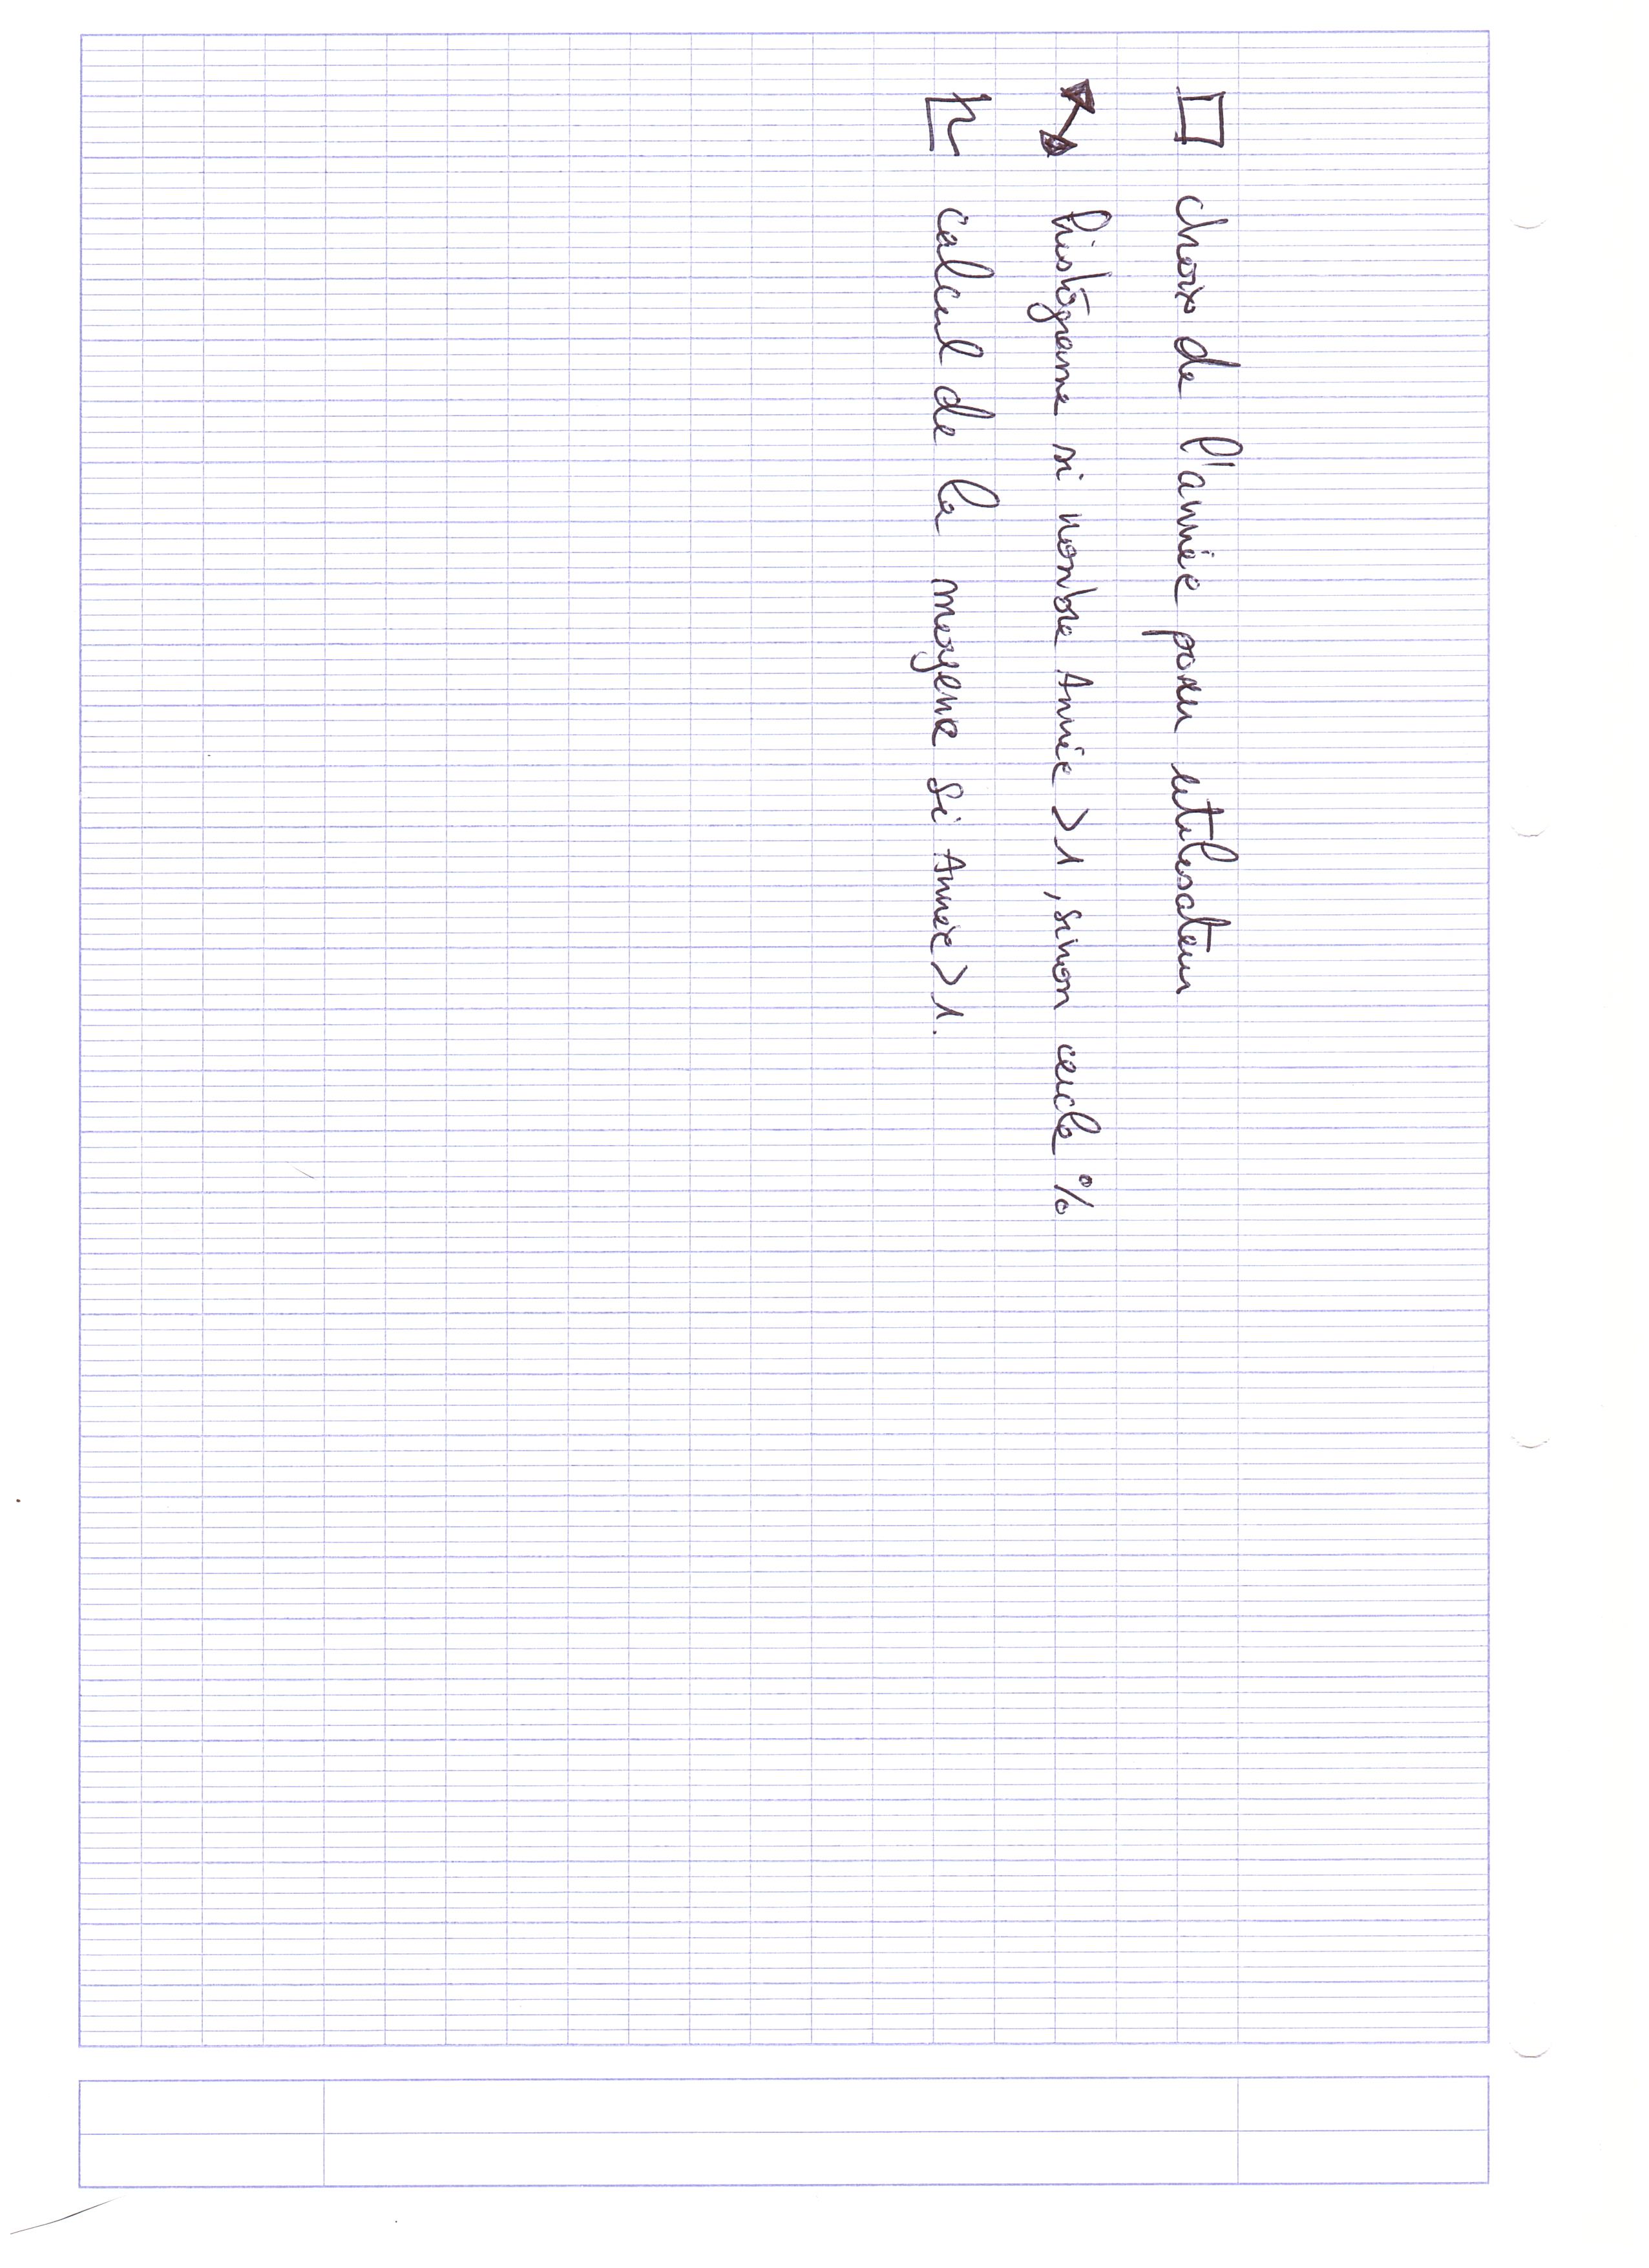 choix de l'année pour utilisateur
histogramme si nombre Année > 1, sinon cercle %
calcul de la moyenne si Année > 1.